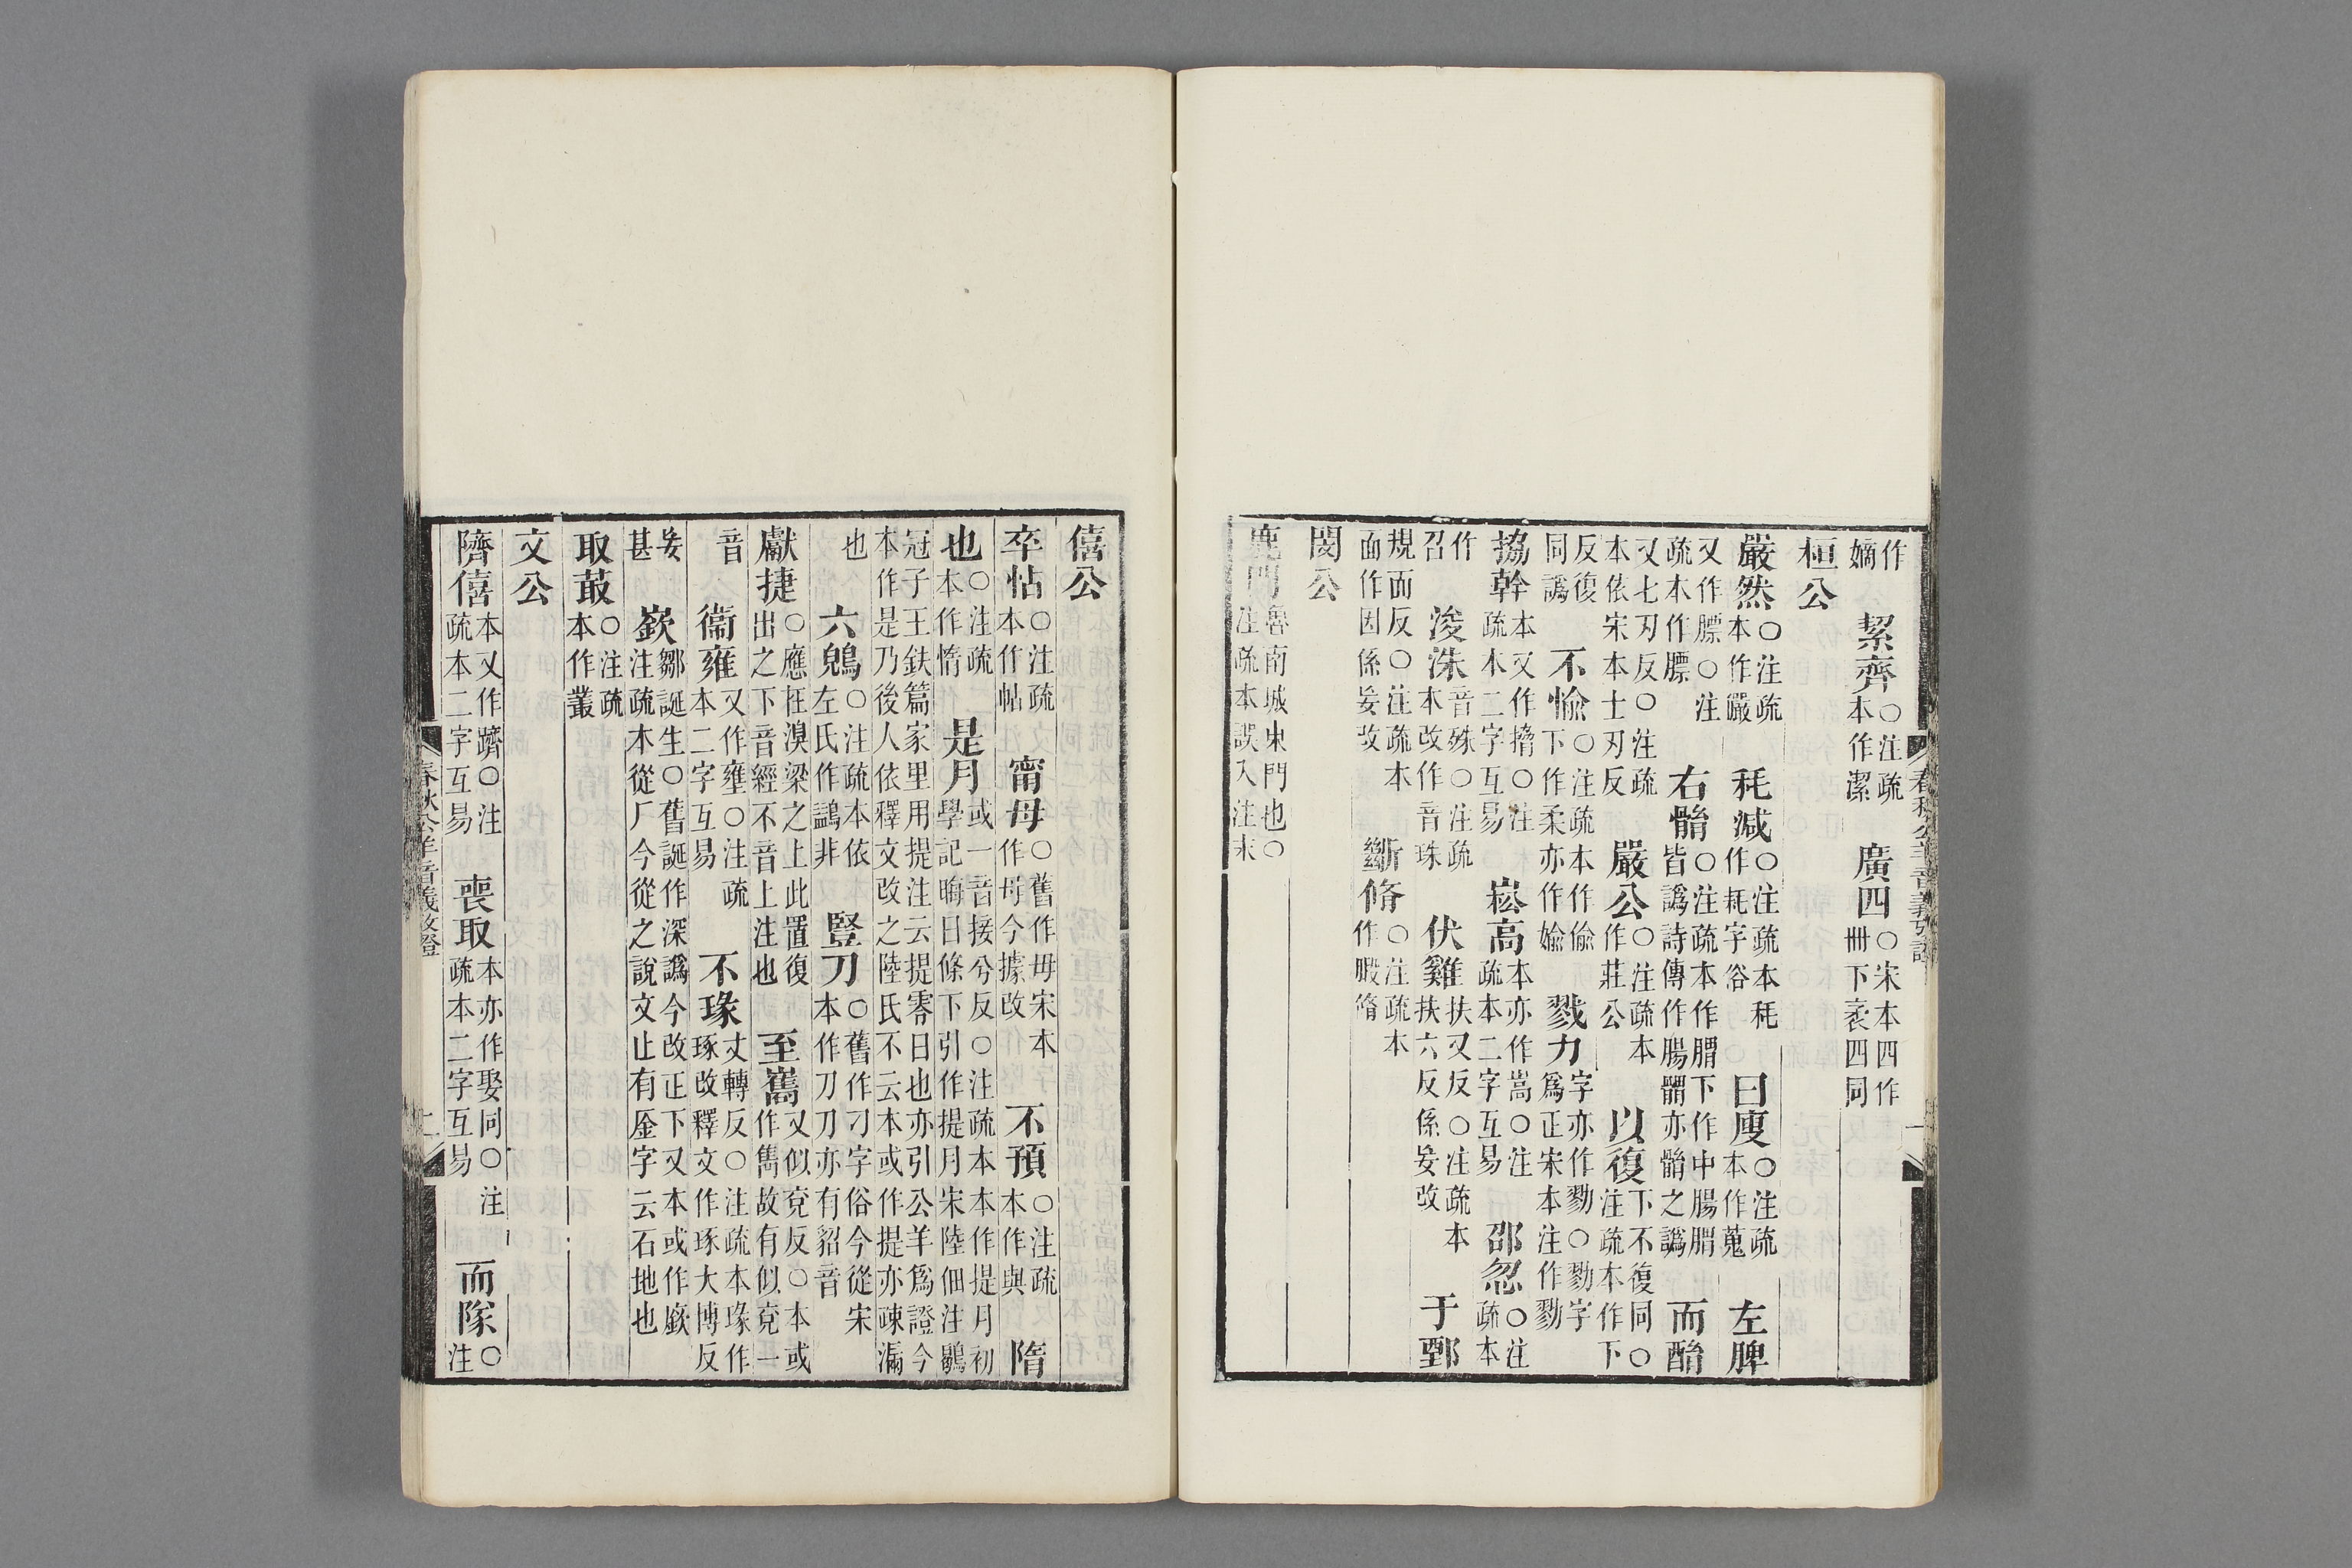 作嫡　絜齊○注疏本作潔　廣四○宋本四作卌下袤四同
桓公
嚴然○注疏本作儼　秏減○注疏本秏作耗字俗　曰廋○注疏本作蒐　左脾
又作膘○注疏本作膘　右髃○注疏本作腢下作中腸腢皆譌詩傳作腸髃亦髃之譌　而酳
又七刃反○注疏本依宋本士刃反　嚴公○注疏本作莊公　以復下不復同○注疏本作下
反復同譌　不愉○注疏本作偷下作柔亦作婾　戮力字亦作勠○勠字爲正宋本注作勠
搚幹本又作擸○注疏本二字互易　崧高本亦作嵩○注疏本二字互易　邵忽○注疏本
作召　浚洙音殊○注疏本改作音珠　伏雞扶又反○注疏本扶六反係妄改　于鄄
規面反○注疏本面作因係妄改　斷脩○注疏本作腶脩
閔公
鹿門魯南城東門也○注疏本誤入注末
春秋公羊音義攷證
僖公
卒怗○注疏本作帖　甯母○舊作毋宋本作母今據改　不預○注疏本作與　隋
也○注疏本作惰　是月或一音接兮反○注疏本本作提月初學記晦日條下引作提月宋陸佃注鶡
冠子王鈇篇家里用提注云提零日也亦引公羊爲證今本作是乃後人依釋文改之陸氏不云本或作提亦疎漏
也　六鶂○注疏本依左氏作鷁非　豎刀○舊作刁字俗今從宋本作刀刀亦有貂音
獻捷○應在溴梁之上此置復出之下音經不音上注也　至巂又似兗反○本或作雋故有似兗一
音　衞雍又作壅○注疏本二字互易　不瑑丈轉反○注疏本瑑作琢改釋文作琢大博反
妄甚　嶔鄒誕生○舊誕作深譌今改正下又本或作廞注疏本從厂今從之說文止有厜字云石地也
取菆○注疏本作叢
文公
隮僖本又作躋○注疏本二字互易　喪取本亦作娶同○注疏本二字互易　而隊○注
春秋公羊音義攷證